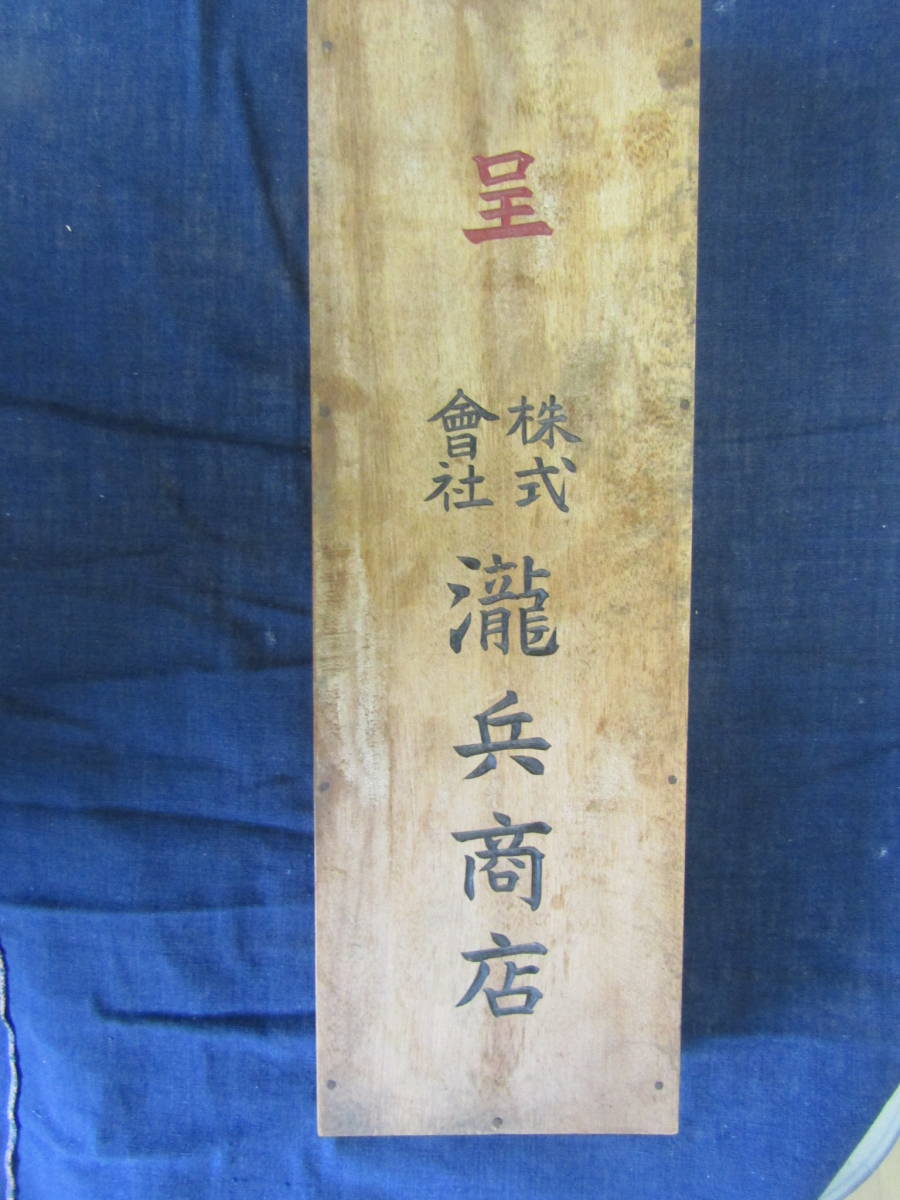 呈
株式
會社
瀧兵商店